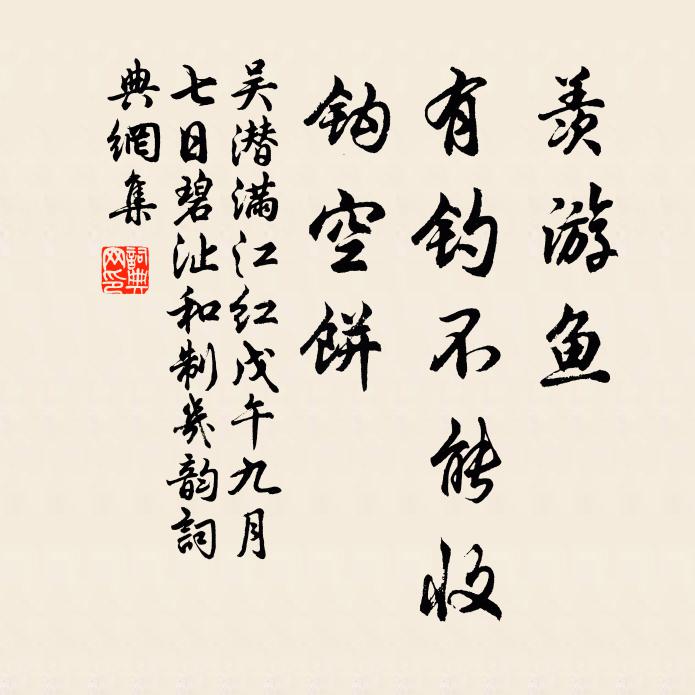 羡游鱼
有钓不能收
钩空饼
吴潜满江红戊午九月
七日碧沚和制几韵詞
典網集
詞典网印